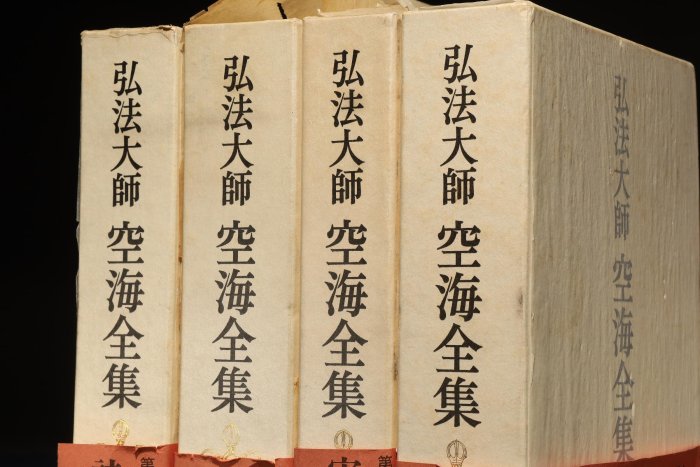 弘法大師 空海全集
弘法大師 空海全集
弘法大師 空海全集
弘法大師 空海全集
弘法大師 空海全集
第
第